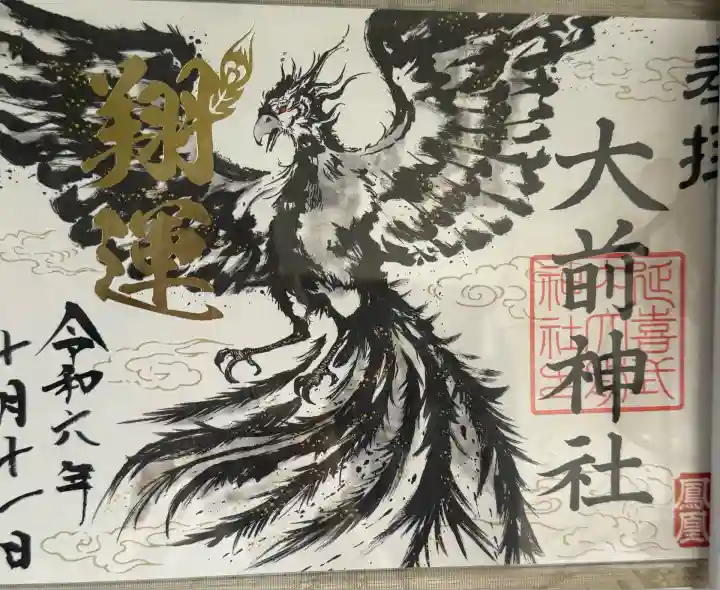 奉拝
大前神社
延喜式
神社
鳳凰
翔運
令和六年
十月十一日